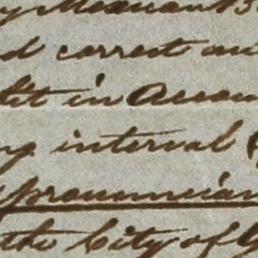 Mexican
d correct an
dit in Accou
ng interval (
pronuncian
the City of G